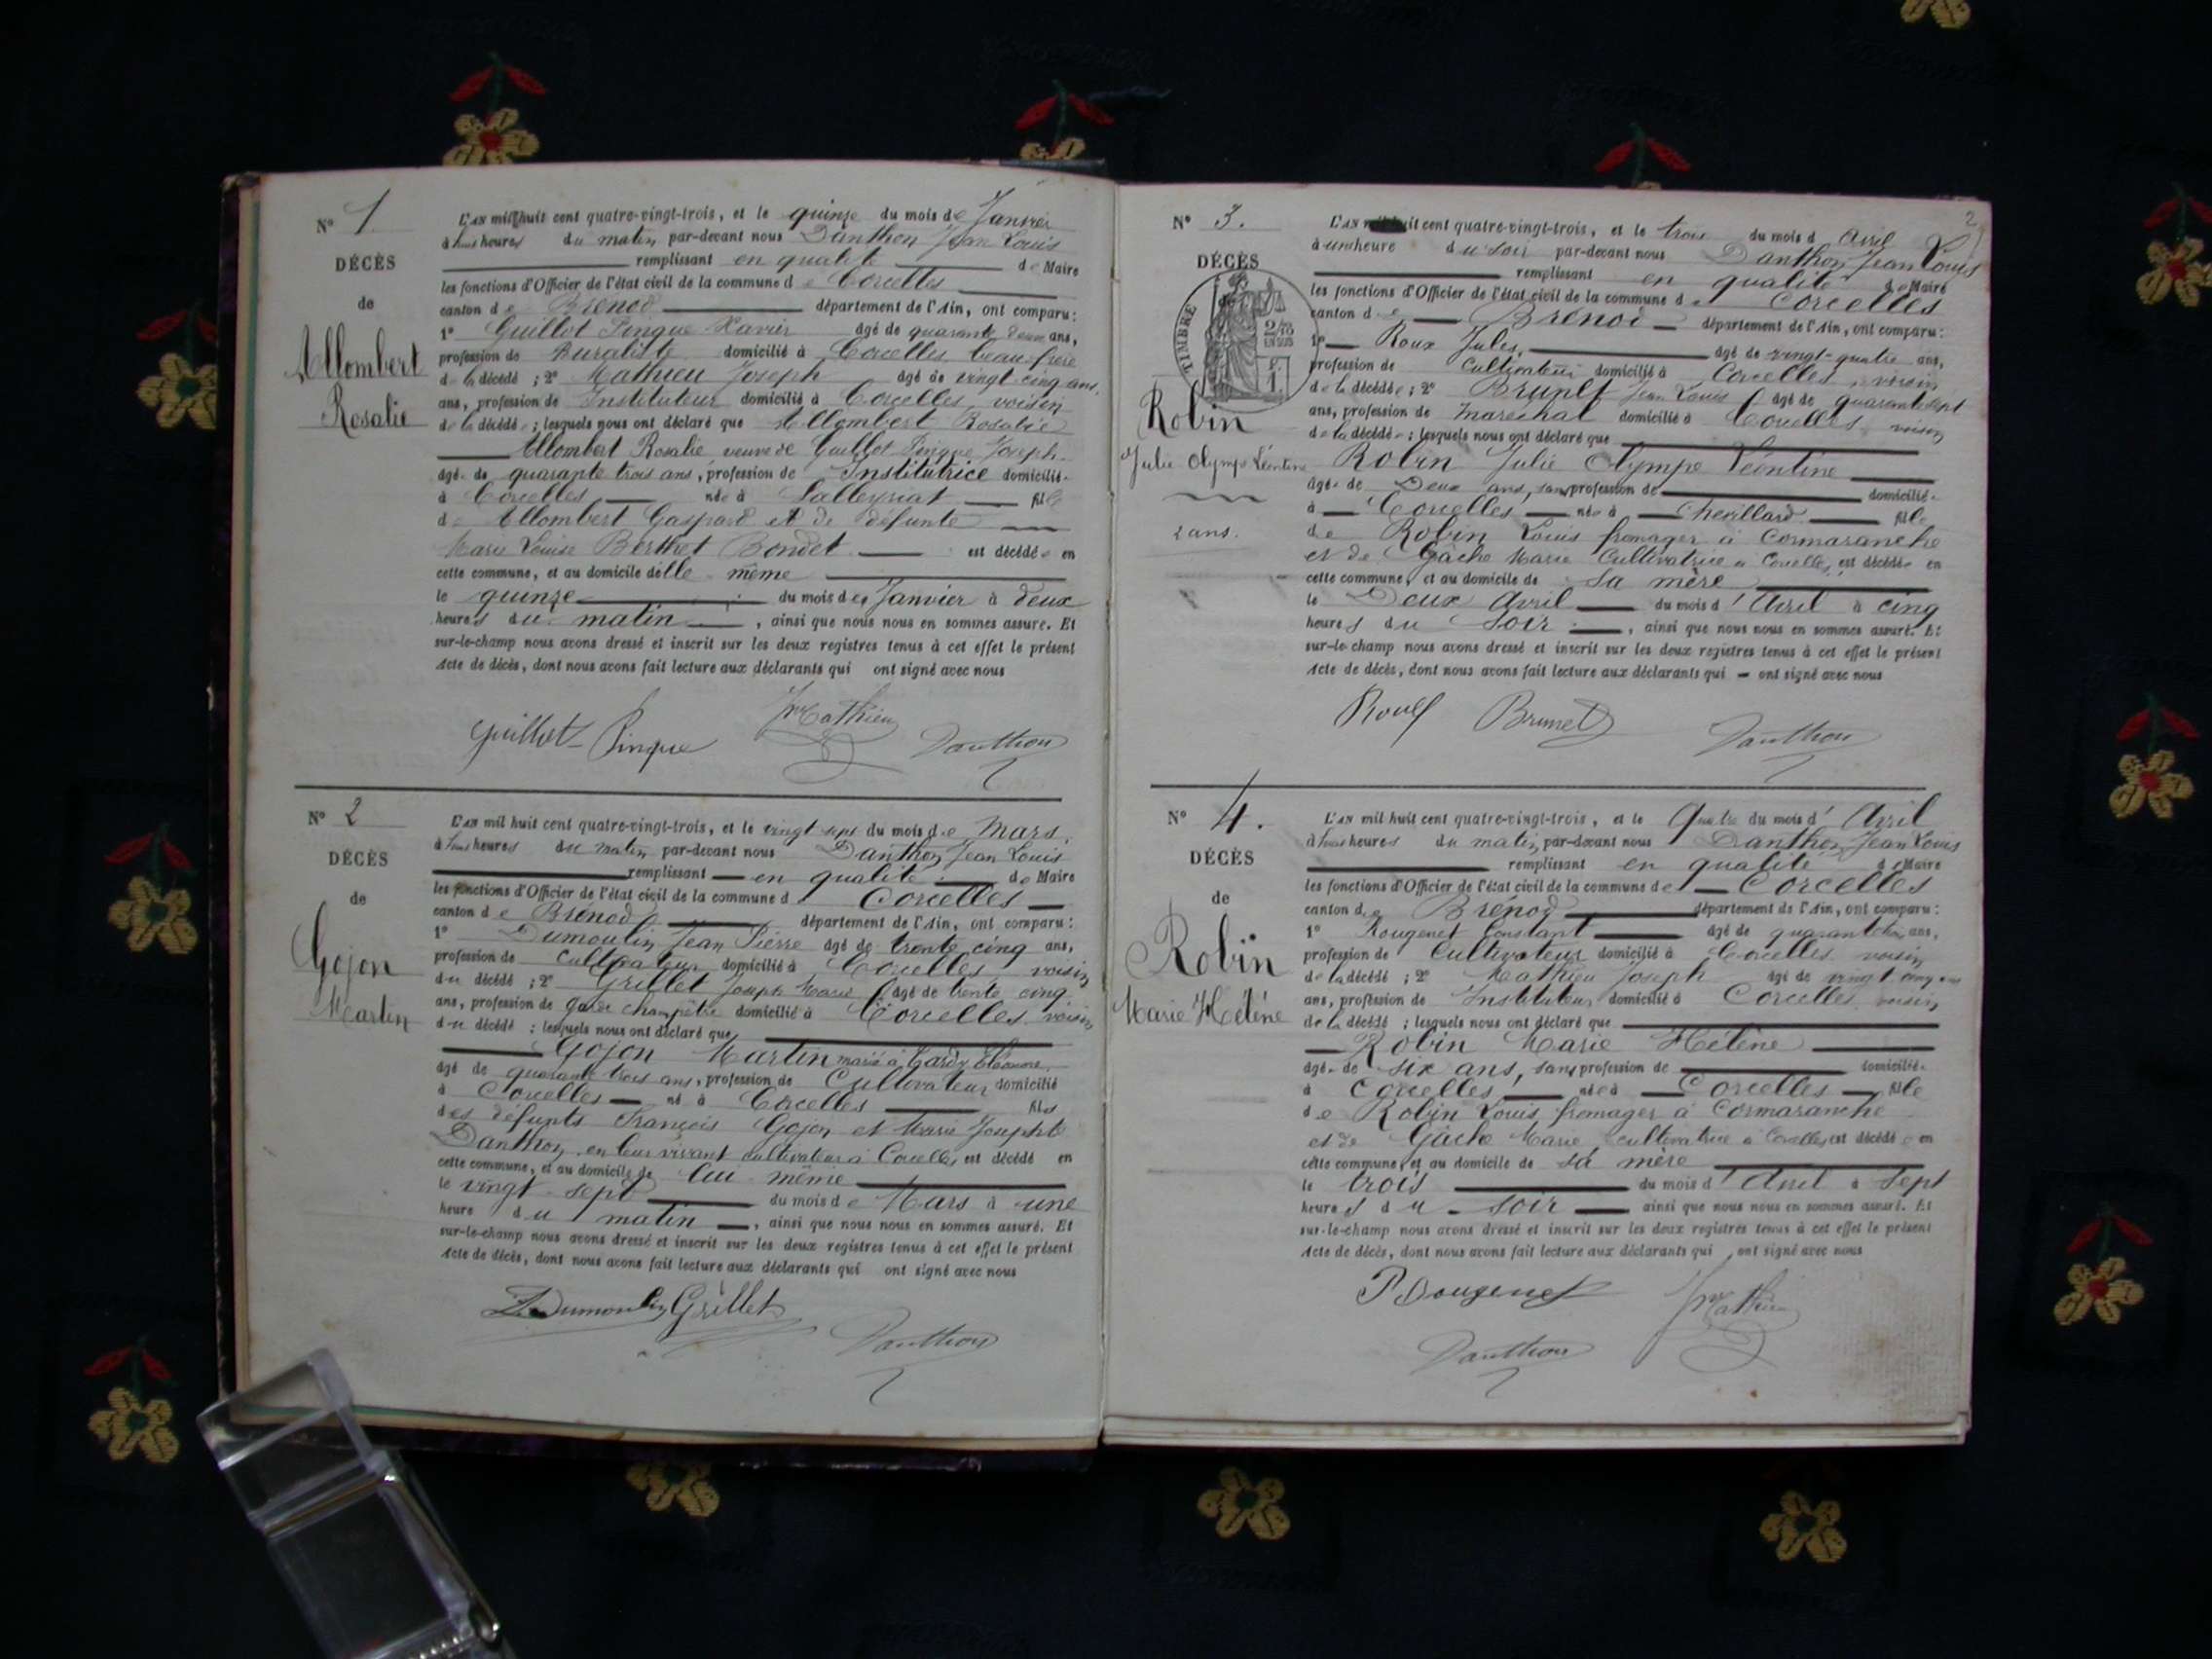 N° 1.
DÉCÈS
de
Allombert
Rosalie
L'AN mil huit cent quatre-vingt-trois, et le quinze du mois de Janvier
à heures du matin par-devant nous Danthon Jean Louis
remplissant en qualité de Maire
les fonctions d'Officier de l'état civil de la commune de Corcelles
canton de Brénod département de l'Ain, ont comparu :
1° Guillot Pingue Xavier âgé de quarante deux ans,
profession de Buraliste domicilié à Corcelles beau-frère
de la décédé ; 2° Mathieu Joseph âgé de vingt-cinq ans.
ans, profession de Instituteur domicilié à Corcelles, voisin
de la décédée ; lesquels nous ont déclaré que Allombert Rosalie
Allombert Rosalie veuve de Guillot Pingue Joseph
âgée de quarante trois ans, profession de Institutrice domiciliée
à Corcelles née à Lalleyriat fille
de Allombert Gaspard et de défunte
Marie Louise Berthet Bondet est décédée en
cette commune, et au domicile d'elle même
le quinze du mois de Janvier à deux
heures du matin, ainsi que nous nous en sommes assuré. Et
sur-le-champ nous avons dressé et inscrit sur les deux registres tenus à cet effet le présent
Acte de décès, dont nous avons fait lecture aux déclarants qui ont signé avec nous
Guillot-Pingue Mathieu Danthon
N° 2
DÉCÈS
de
Gojon
Martin
L'AN mil huit cent quatre-vingt-trois, et le vingt sept du mois de Mars
à heures du matin, par-devant nous Danthon Jean Louis
remplissant en qualité de Maire
les fonctions d'Officier de l'état civil de la commune d Corcelles
canton de Brénod département de l'Ain, ont comparu :
1° Dumoulin Jean Pierre âgé de trente cinq ans,
profession de Cultivateur domicilié à Corcelles voisin
du décédé ; 2° Grillet Joseph Marie âgé de trente cinq
ans, profession de garde champêtre domicilié à Corcelles voisin
du décédé ; lesquels nous ont déclaré que
Gojon Martin marié à Tardy Eléonore
âgé de quarante trois ans, profession de Cultivateur domicilié
à Corcelles né à Corcelles fils
des défunts François Gojon et Marie Josephte
Danthon, en leur vivant cultivateurs à Corcelles est décédé en
cette commune, et au domicile de lui-même
le vingt-sept du mois de Mars à une
heure du matin, ainsi que nous nous en sommes assuré. Et
sur-le-champ nous avons dressé et inscrit sur les deux registres tenus à cet effet le présent
Acte de décès, dont nous avons fait lecture aux déclarants qui ont signé avec nous
Dumoulin Grillet
Danthon
2
N° 3.
DÉCÈS
TIMBRE
Robin
Julie Olympe Léontine
2 ans.
L'AN mil huit cent quatre-vingt-trois, et le trois du mois d Avril
à une heure du soir par-devant nous Danthon Jean Louis
remplissant en qualité de Maire
les fonctions d'Officier de l'état civil de la commune de Corcelles
canton de Brénod département de l'Ain, ont comparu :
1° Roux Jules, âgé de vingt-quatre ans,
profession de Cultivateur domicilié à Corcelles, voisin
de la décédée ; 2° Brunet Jean Louis âgé de quarante sept
ans, profession de maréchal domicilié à Corcelles voisin
de la décédée ; lesquels nous ont déclaré que
Robin Julie Olympe Léontine
âgée de Deux ans, sans profession de domiciliée
à Corcelles née à Chevillard fille
de Robin Louis fromager à Cormaranche
et de Gâche Marie Cultivatrice à Corcelles, est décédée en
cette commune, et au domicile de sa mère
le Deux Avril du mois d'Avril à cinq
heures du soir, ainsi que nous nous en sommes assuré. Et
sur-le-champ nous avons dressé et inscrit sur les deux registres tenus à cet effet le présent
Acte de décès, dont nous avons fait lecture aux déclarants qui ont signé avec nous
Roux Brunet Danthon
N° 4.
DÉCÈS
de
Robin
Marie Hélène
L'AN mil huit cent quatre-vingt-trois, et le Quatre du mois d'Avril
à heures du matin par-devant nous Danthon Jean Louis
remplissant en qualité de Maire
les fonctions d'Officier de l'état civil de la commune de Corcelles
canton de Brénod département de l'Ain, ont comparu :
1° Rougenet Constant âgé de ans,
profession de Cultivateur domicilié à Corcelles voisin
de la décédé ; 2° Mathieu Joseph âgé de vingt cinq ans
ans, profession de Instituteur domicilié à Corcelles voisin
de la décédé ; lesquels nous ont déclaré que
Robin Marie Hélène
âgée de six ans, sans profession de domiciliée
à Corcelles née à Corcelles fille
de Robin Louis, fromager à Cormaranche
et de Gâche Marie, cultivatrice à Corcelles, est décédée en
cette commune, et au domicile de sa mère
le trois du mois d'Avril à sept
heures du soir ainsi que nous nous en sommes assuré. Et
sur-le-champ nous avons dressé et inscrit sur les deux registres tenus à cet effet le présent
Acte de décès, dont nous avons fait lecture aux déclarants qui ont signé avec nous
Rougenet Mathieu
Danthon